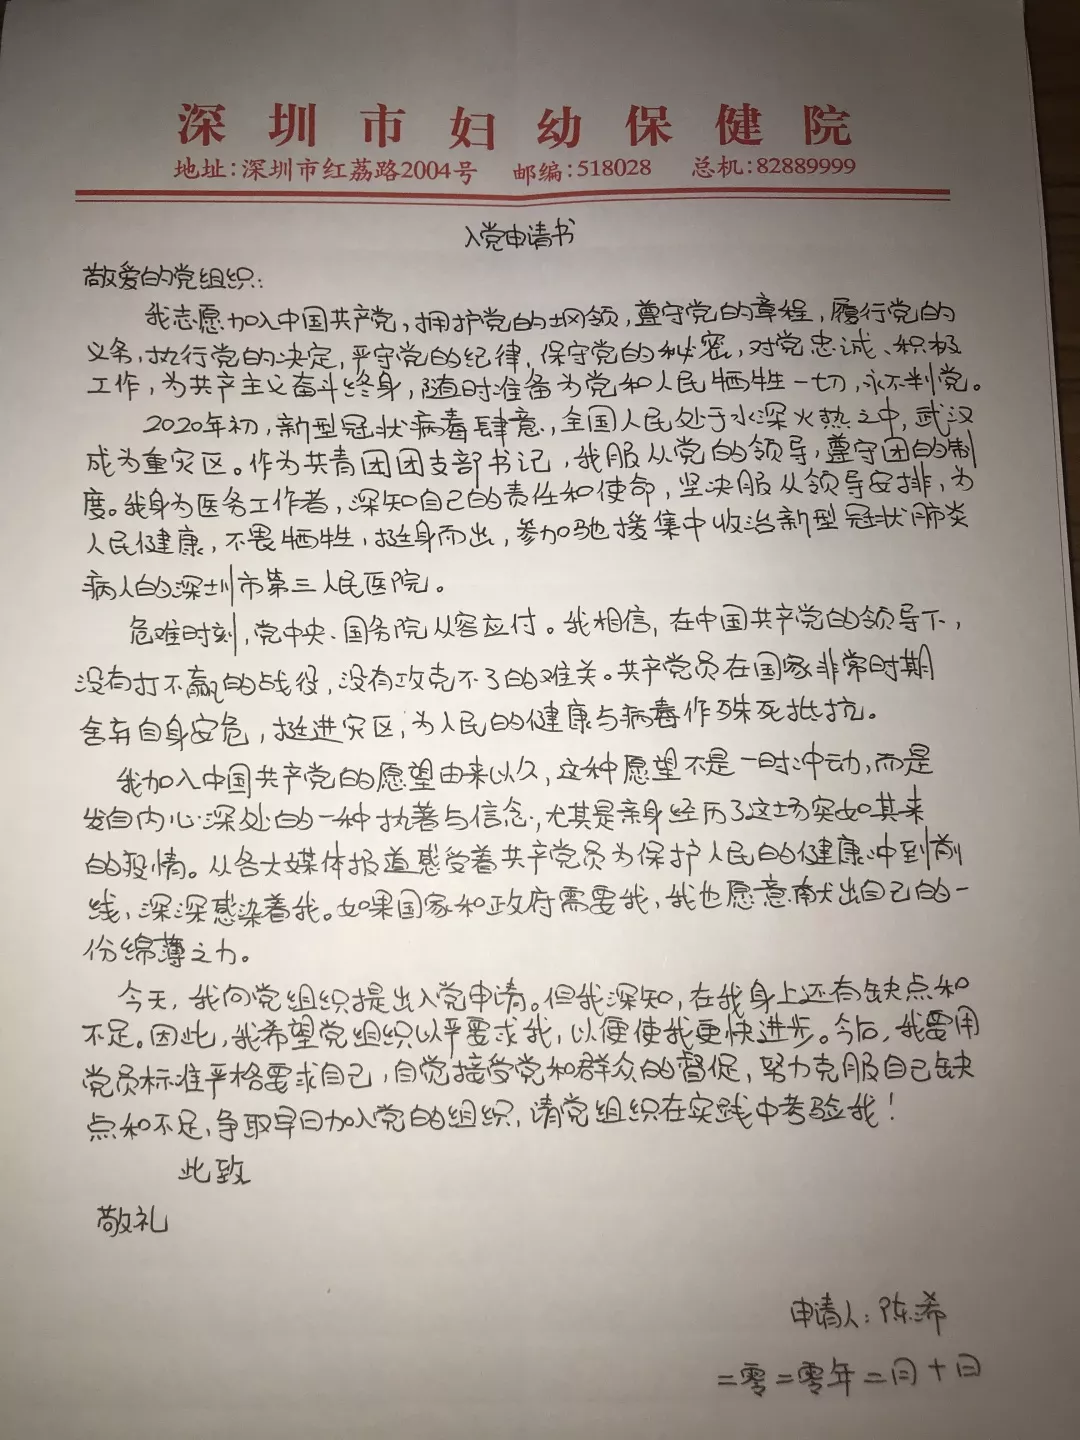 深圳市妇幼保健院
地址:深圳市红荔路2004号 邮编:518028 总机:82889999
入党申请书
敬爱的党组织:
我志愿加入中国共产党,拥护党的纲领,遵守党的章程,履行党的
义务,执行党的决定,严守党的纪律,保守党的秘密,对党忠诚、积极
工作,为共产主义奋斗终身,随时准备为党和人民牺牲一切,永不判党。
2020年初,新型冠状病毒肆意,全国人民处于水深火热之中,武汉
成为重灾区。作为共青团团支部书记,我服从党的领导,遵守团的制
度。我身为医务工作者,深知自己的责任和使命,坚决服从领导安排,为
人民健康,不畏牺牲,挺身而出,参加驰援集中收治新型冠状肺炎
病人的深圳市第三人民医院。
危难时刻,党中央、国务院从容应付。我相信,在中国共产党的领导下,
没有打不赢的战役,没有攻克不了的难关。共产党员在国家非常时期
舍弃自身安危,挺进灾区,为人民的健康与病毒作殊死抵抗。
我加入中国共产党的愿望由来以久,这种愿望不是一时冲动,而是
发自内心深处的一种执着与信念,尤其是亲身经历了这场突如其来
的疫情。从各大媒体报道感受着共产党员为保护人民的健康冲到前
线,深深感染着我。如果国家和政府需要我,我也愿意献出自己的一
份绵薄之力。
今天,我向党组织提出入党申请。但我深知,在我身上还有缺点和
不足。因此,我希望党组织以严要求我,以便使我更快进步。今后,我要用
党员标准严格要求自己,自觉接受党和群众的督促,努力克服自己缺
点和不足,争取早日加入党的组织,请党组织在实践中考验我!
此致
敬礼
申请人:陈希
二零二零年二月十日